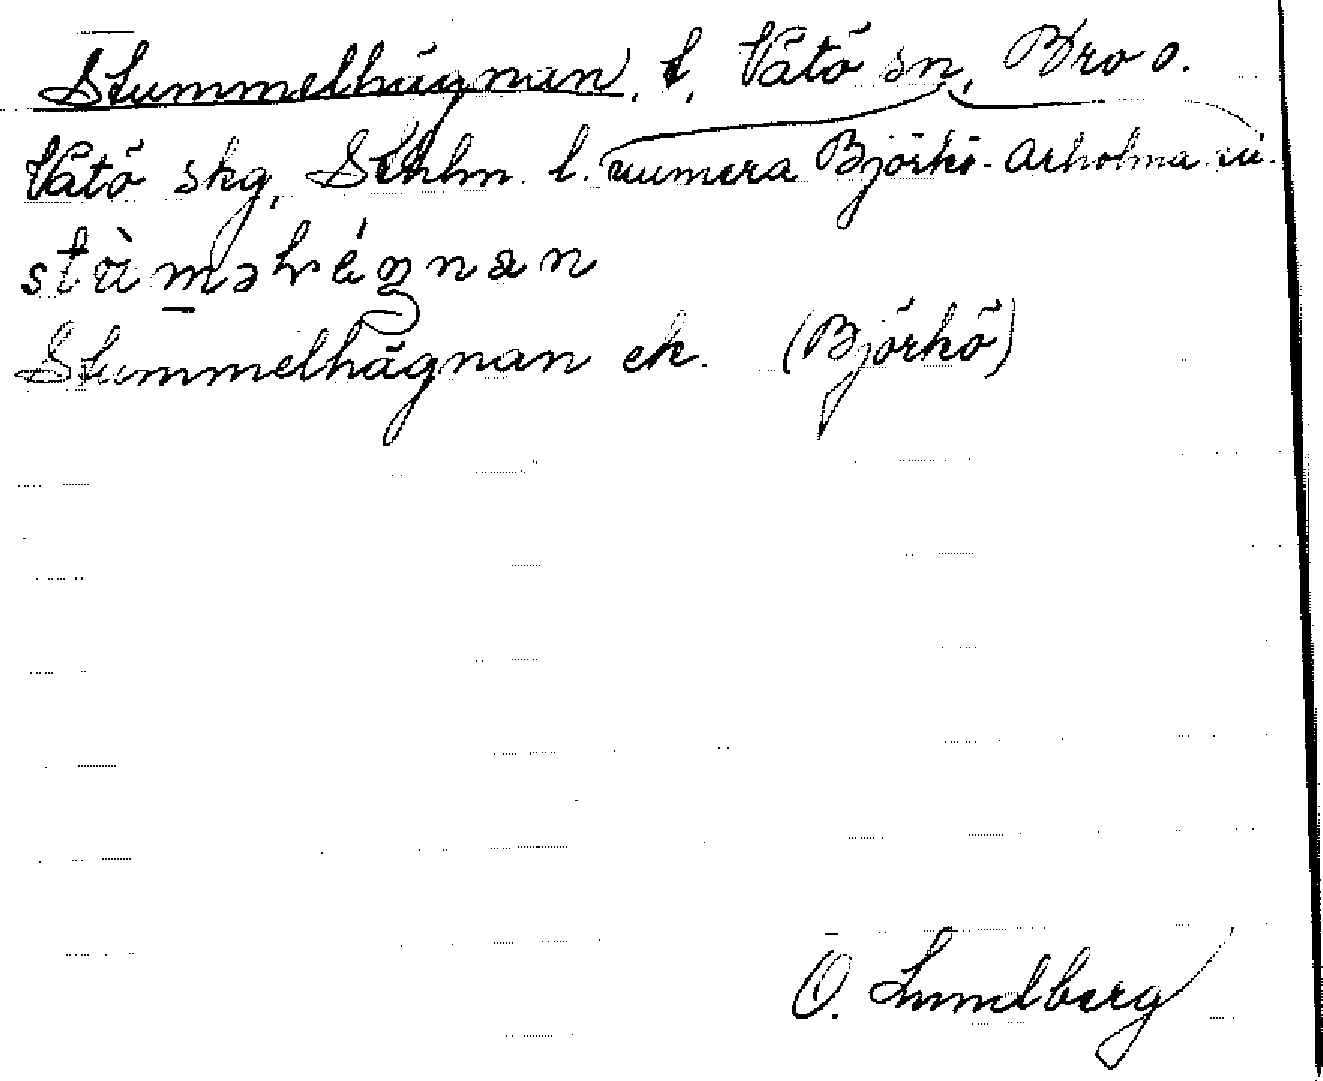 Stummelhägnan, t, Vätö sn, Bro o.
Vätö skg, Sthlm. l. numera Björkö-Arholma sn.
stùməhégnan
Stummelhägnan ek. (Björkö)
O. Lundberg